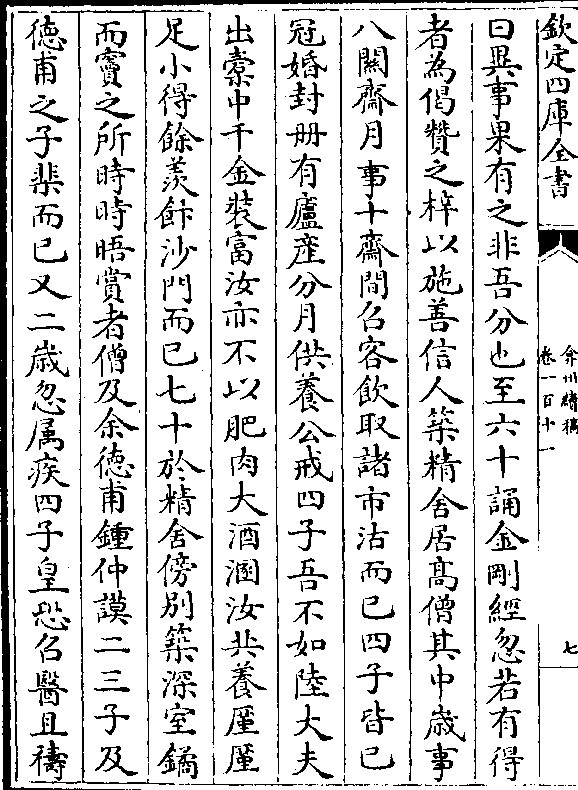 欽定四庫全書
弇州續稿
卷一百十一
七
曰異事果有之非吾分也至六十誦金剛經忽若有得
者為偈贊之梓以施善信人築精舍居髙僧其中歳事
八闗齋月事十齋間召客飲取諸市沽而已四子皆已
冠婚封册有廬産分月供養公戒四子吾不如陸大夫
出橐中千金裝富汝亦不以肥肉大酒溷汝共養厪厪
足小得餘羨飰沙門而已七十於精舍傍别築深室鐍
而竇之所時時晤賞者僧及余徳甫鍾仲謨二三子及
徳甫之子棐而已又二歳忽属疾四子皇恐召醫且禱